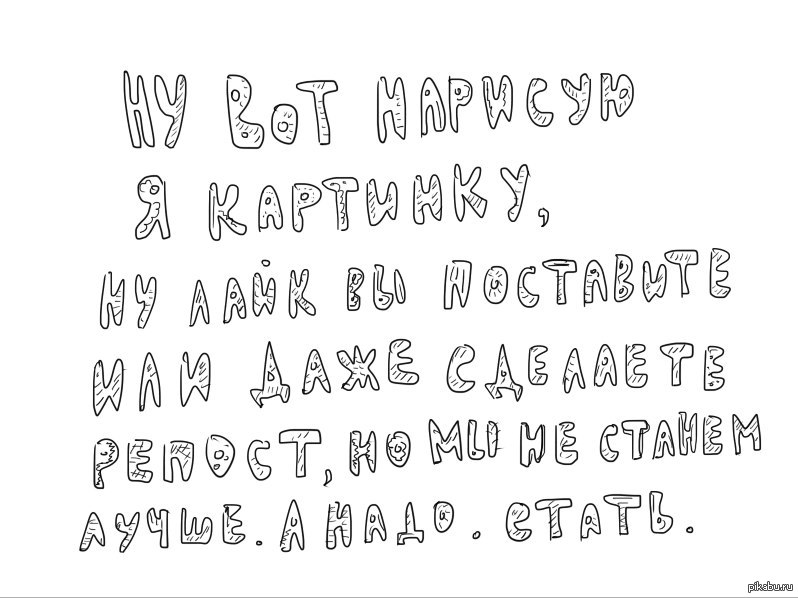 НУ ВОТ НАРИСУЮ
Я КАРТИНКУ,
НУ ЛАЙК ВЫ ПОСТАВИТЕ
ИЛИ ДАЖЕ СДЕЛАЕТЕ
РЕПОСТ, НО МЫ НЕ СТАНЕМ
ЛУЧШЕ. А НАДО. СТАТЬ.
pikabu.ru